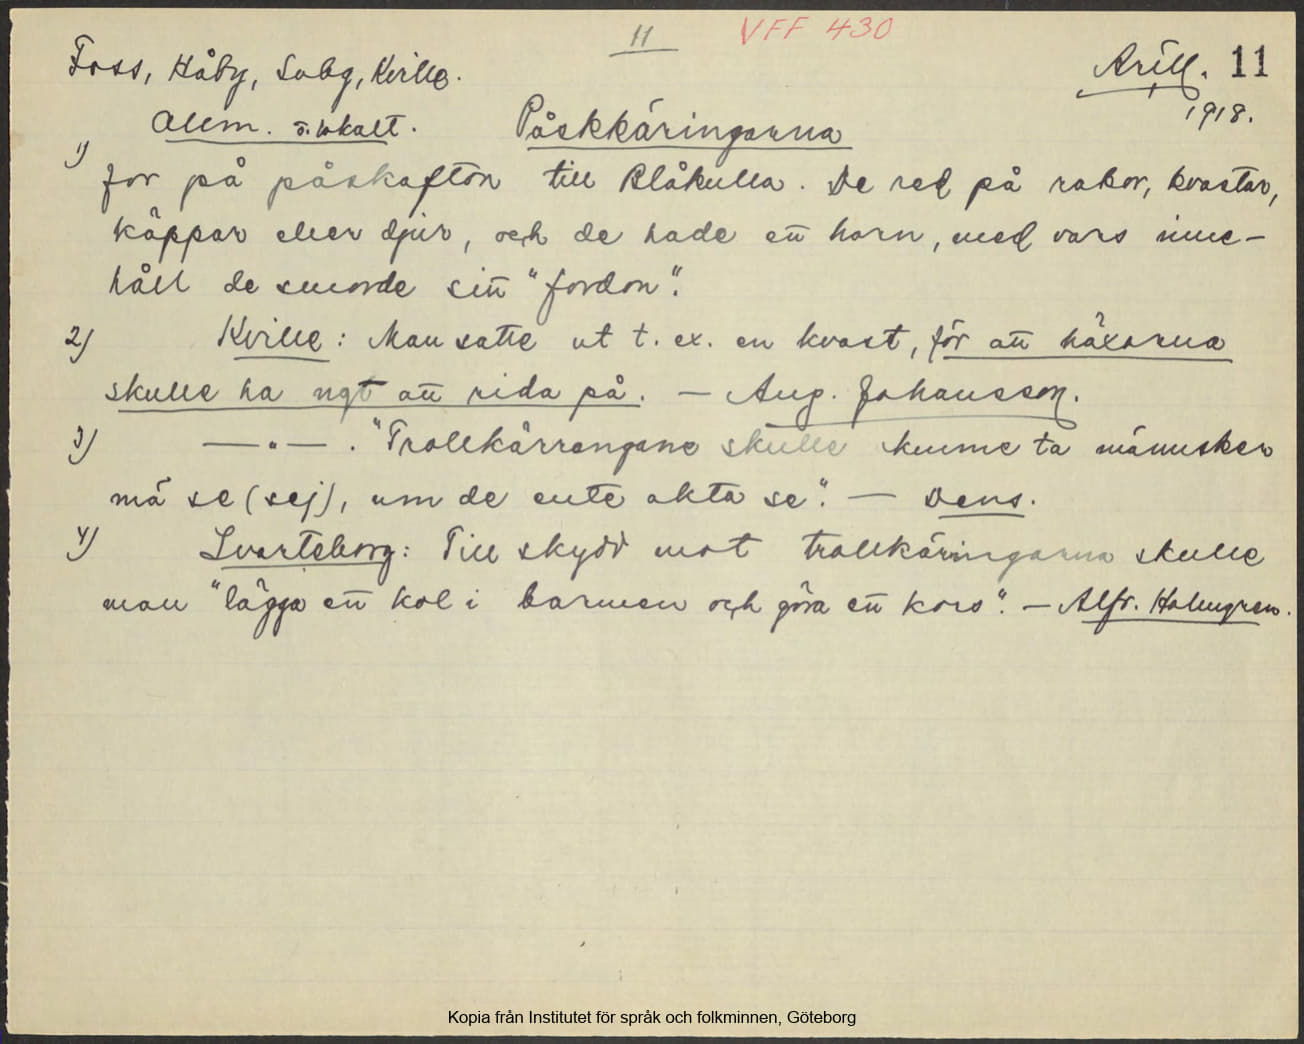 11
VFF 430
Foss, Håby, Svbg, Kville.
Arill. 11
1918.
Allm. o. lokalt. Påskkäringarna
1) for på påskafton till Blåkulla. De red på rakor, kvastar,
käppar eller djur, och de hade ett horn, med vars inne-
håll de smorde sitt "fordon".
2) Kville: Man satte ut t. ex. en kvast, för att häxorna
skulle ha ngt att rida på. — Aug. Johansson.
3) —"— . "Trollkärrengane skulle kunne ta männsker
mä se (sej), um de ente akta se". — Dens.
4) Svarteborg: Till skydd mot trollkäringarna skulle
man "lägga ett kol i barmen och göra ett kors". — Alfr. Holmgren.
Kopia från Institutet för språk och folkminnen, Göteborg